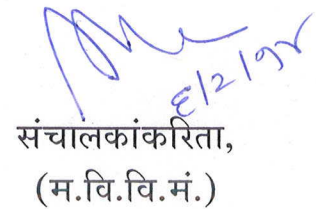 ६/२/१४
संचालकांकरिता,
(म.वि.वि.मं.)